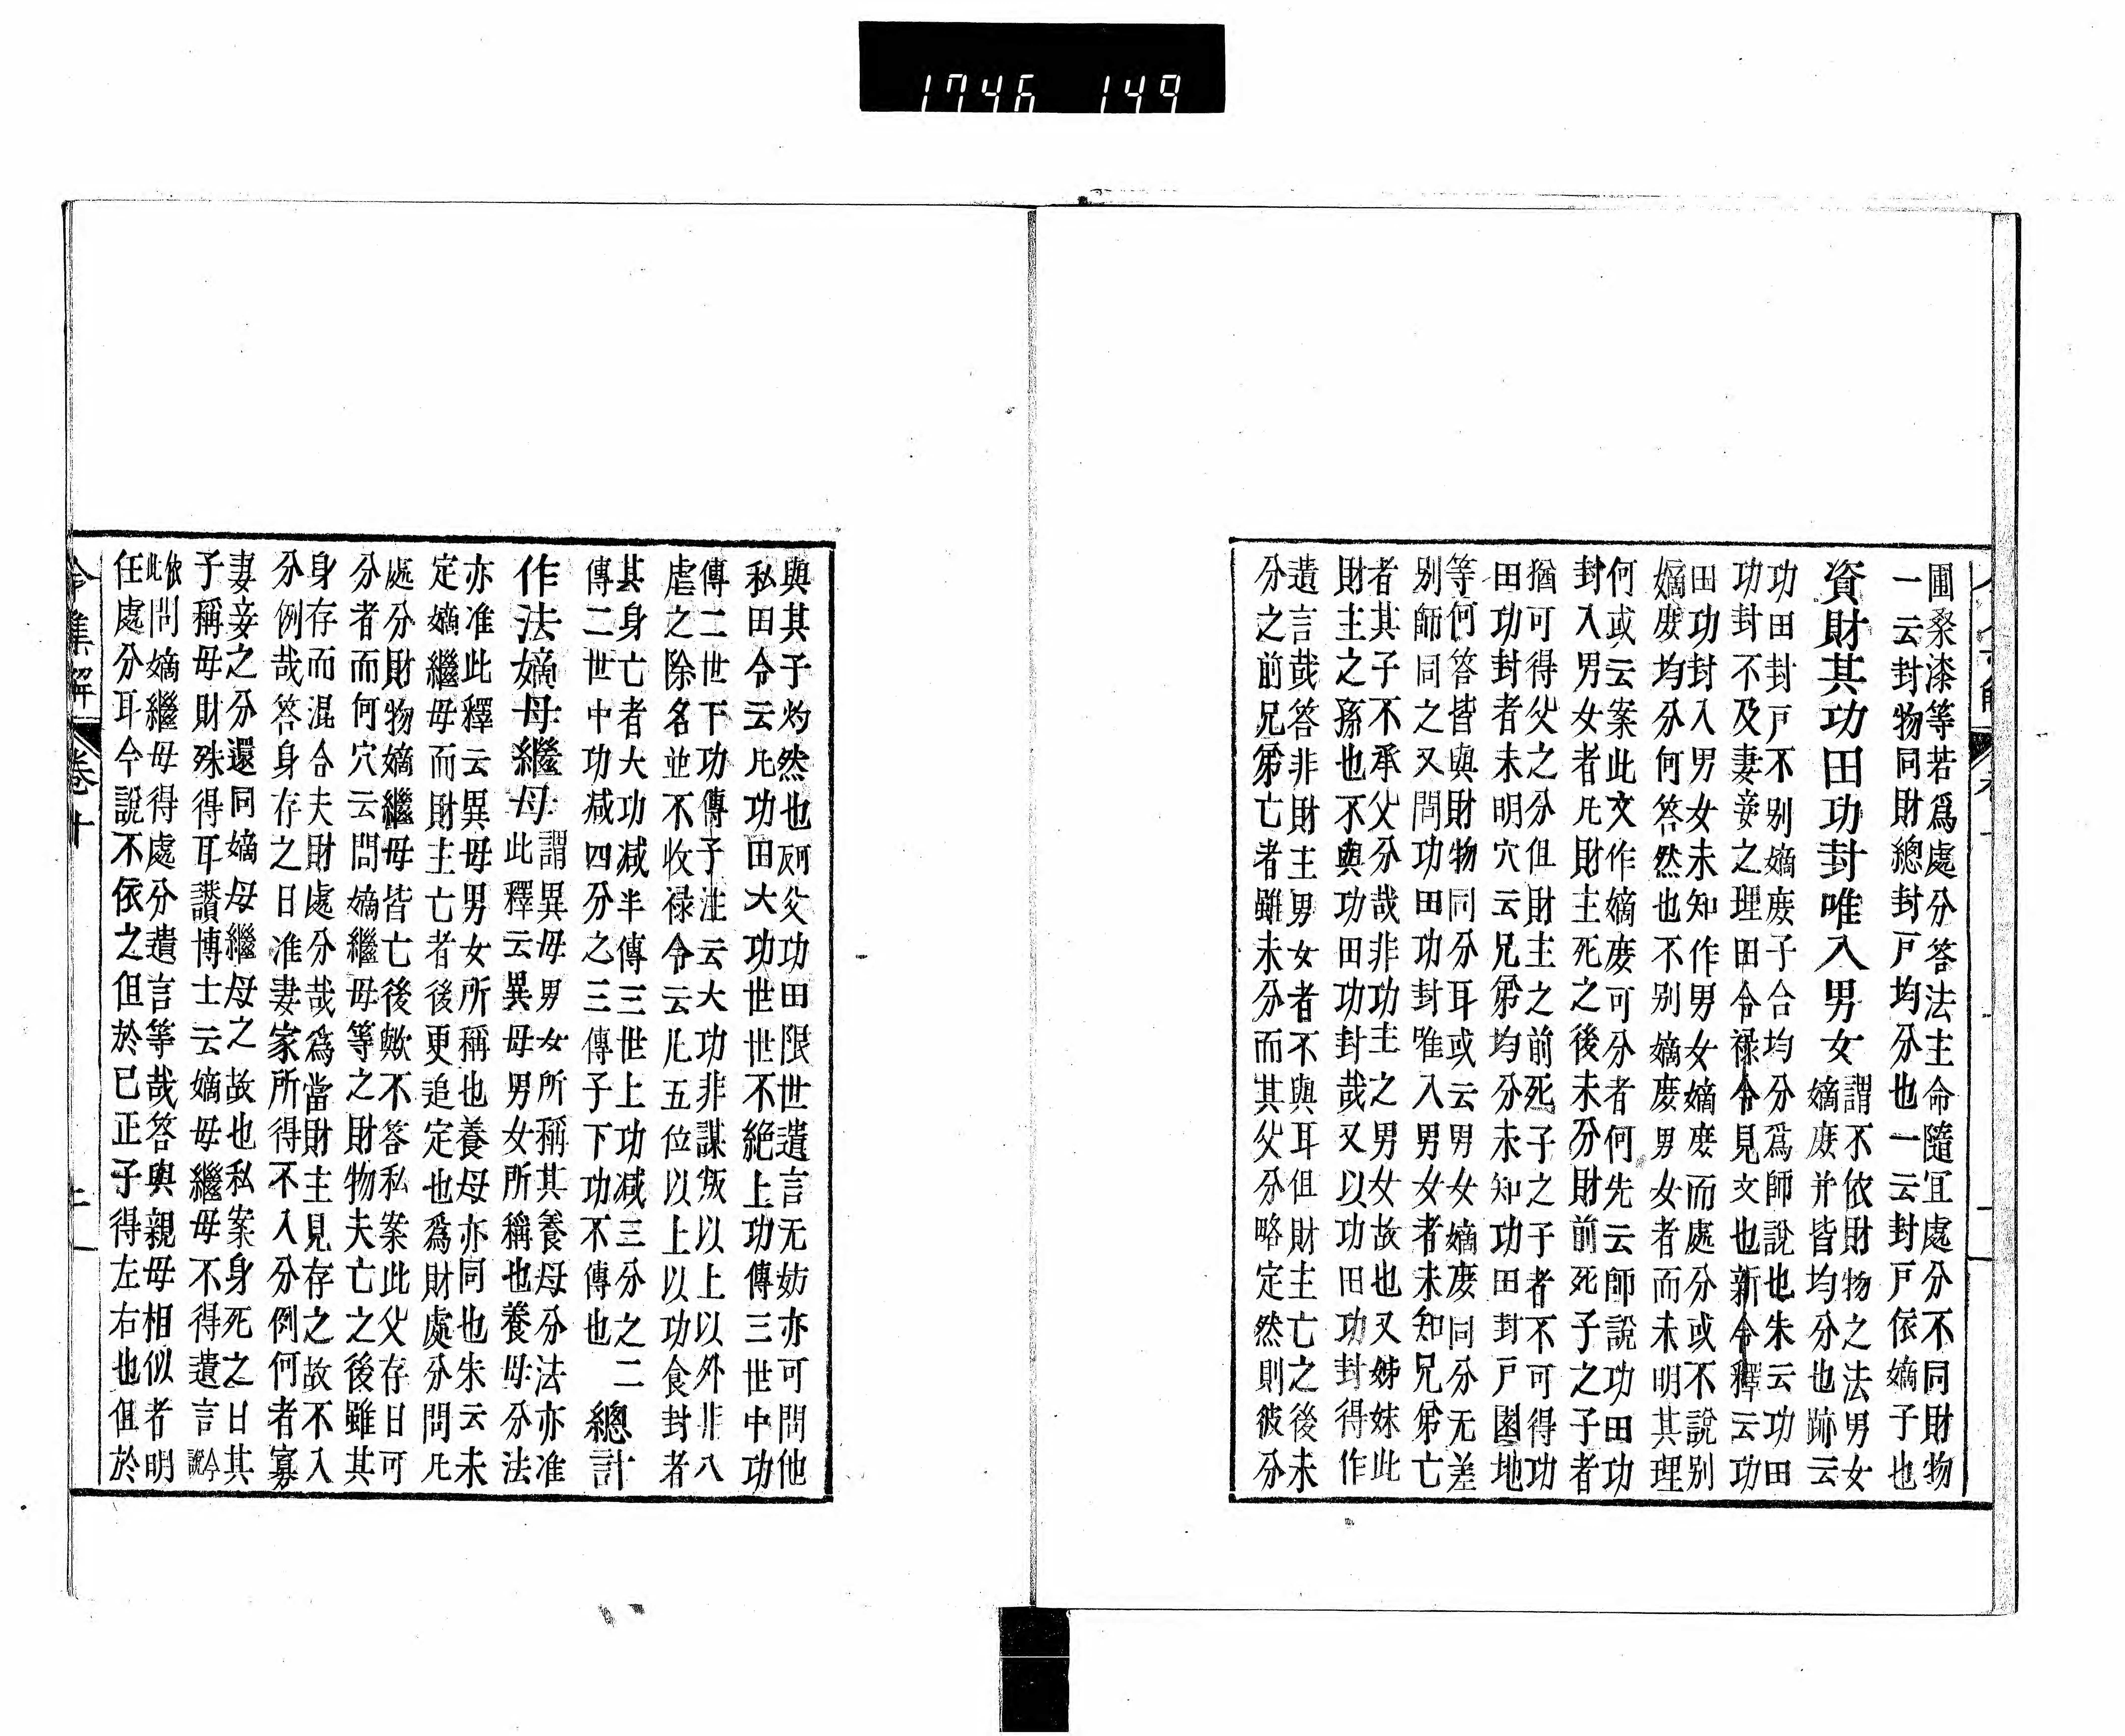 1746 149
圃桑漆等若爲處分答法主命隨宜處分不同財物
一云封物同財總封戸均分也一云封戸依嫡子也
資財其功田功封唯入男女
謂不依財物之法男女
嫡庻并皆均分也跡云
功田封戸不别嫡庻子合均分爲師說也朱云功田
功封不及妻妾之理田令禄令見文也新令釋云功
田功封入男女未知作男女嫡庻而處分或不說别
嫡庻均分何答然也不别嫡庻男女者而未明其理
何或云案此文作嫡庻可分者何先云師說功田功
封入男女者凡財主死之後未分財前死子之子者
猶可得父之分但財主之前死子之子者不可得功
田功封者未明穴云兄弟均分未知功田封戸園地
等何答皆與財物同分耳或云男女嫡庻同分无差
别師同之又問功田功封唯入男女者未知兄弟亡
者其子不承父分哉非功主之男女故也又姊妹此
財主之孫也不與功田功封哉又以功田功封得作
遺言哉答非財主男女者不與耳但財主亡之後未
分之前兄弟亡者雖未分而其父分略定然則彼分
與其子灼然也問父功田限世遺言无妨亦可問他
私田令云凡功田大功世世不絶上功傳三世中功
傳二世下功傳子注云大功非謀叛以上以外非八
虐之除名並不收禄令云凡五位以上以功食封者
其身亡者大功减半傳三世上功减三分之二
傳二世中功减四分之三傳子下功不傳也
總計
作法嫡母繼母
謂異母男女所稱其養母分法亦准
此釋云異母男女所稱也養母分法
亦准此釋云異母男女所稱也養母亦同也朱云未
定嫡繼母而財主亡者後更追定也爲財處分問凡
處分財物嫡繼母皆亡後歟不答私案此父存日可
分者而何穴云問嫡繼母等之財物夫亡之後雖其
身存而混合夫財處分哉爲當財主見存之故不入
分例哉答身存之日准妻家所得不入分例何者寡
妻妾之分還同嫡母繼母之故也私案身死之日其
子稱母財殊得耳讃博士云嫡母繼母不得遺言
今說
依此
問嫡繼母得處分遺言等哉答與親母相似者明
任處分耳今說不依之但於已正子得左右也但於
令集解 卷十